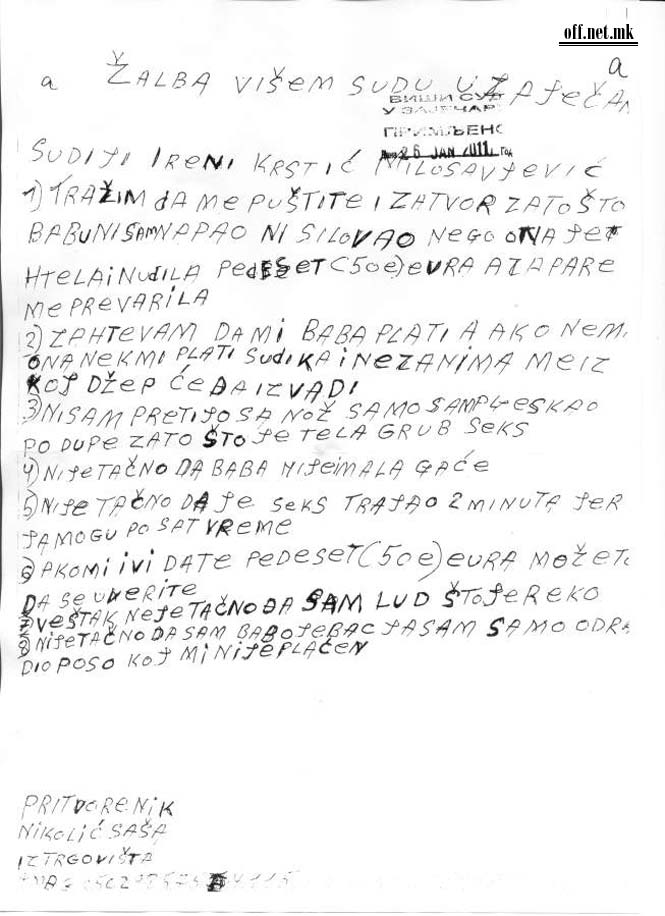 off.net.mk
a
a ŽALBA VIŠEM SUDU U ZAJEČAR
ВИШИ СУД
У ЗАЈЕЧАРУ
ПРИМЉЕНО
26 JAN 2011 год
SUDIJI IRENI KRSTIĆ MILOSAVJEVIĆ
1) TRAŽIM DA ME PUŠTITE IZATVOR ZATO ŠTO
BABU NISAM NAPAO NI SILOVAO NEGO ONA JE
HTELA I NUDILA PEDESET (50e) EURA A ZA PARE
ME PREVARILA
2) ZAHTEVAM DA MI BABA PLATI A AKO NEM
ONA NEK MI PLATI SUDIKA I NEZANIMA ME IZ
KOJ DŽEP ĆE DA IZVADI
3) NISAM PRETIJO SA NOŽ SAMO SAM PLESKAO
PO DUPE ZATO ŠTO JE TELA GRUB SEKS
4) NIJE TAČNO DA BABA NIJE IMALA GAĆE
5) NIJE TAČNO DA JE SEKS TRAJAO 2 MINUTA JER
JA MOGU PO SAT VREME
6) AKO MI I VI DATE PEDESET (50e) EURA MOŽETE
DA SE UVERITE
7) VEŠTAK NEJE TAČNO DA SAM LUD ŠTO JE REKO
8) NIJE TAČNO DA SAM BABOJEBAC JA SAM SAMO ODRA
DIO POSO KOJ MI NIJE PLAĆEN
PRITVORENIK
NIKOLIĆ SAŠA
IZ TRGOVIŠTA